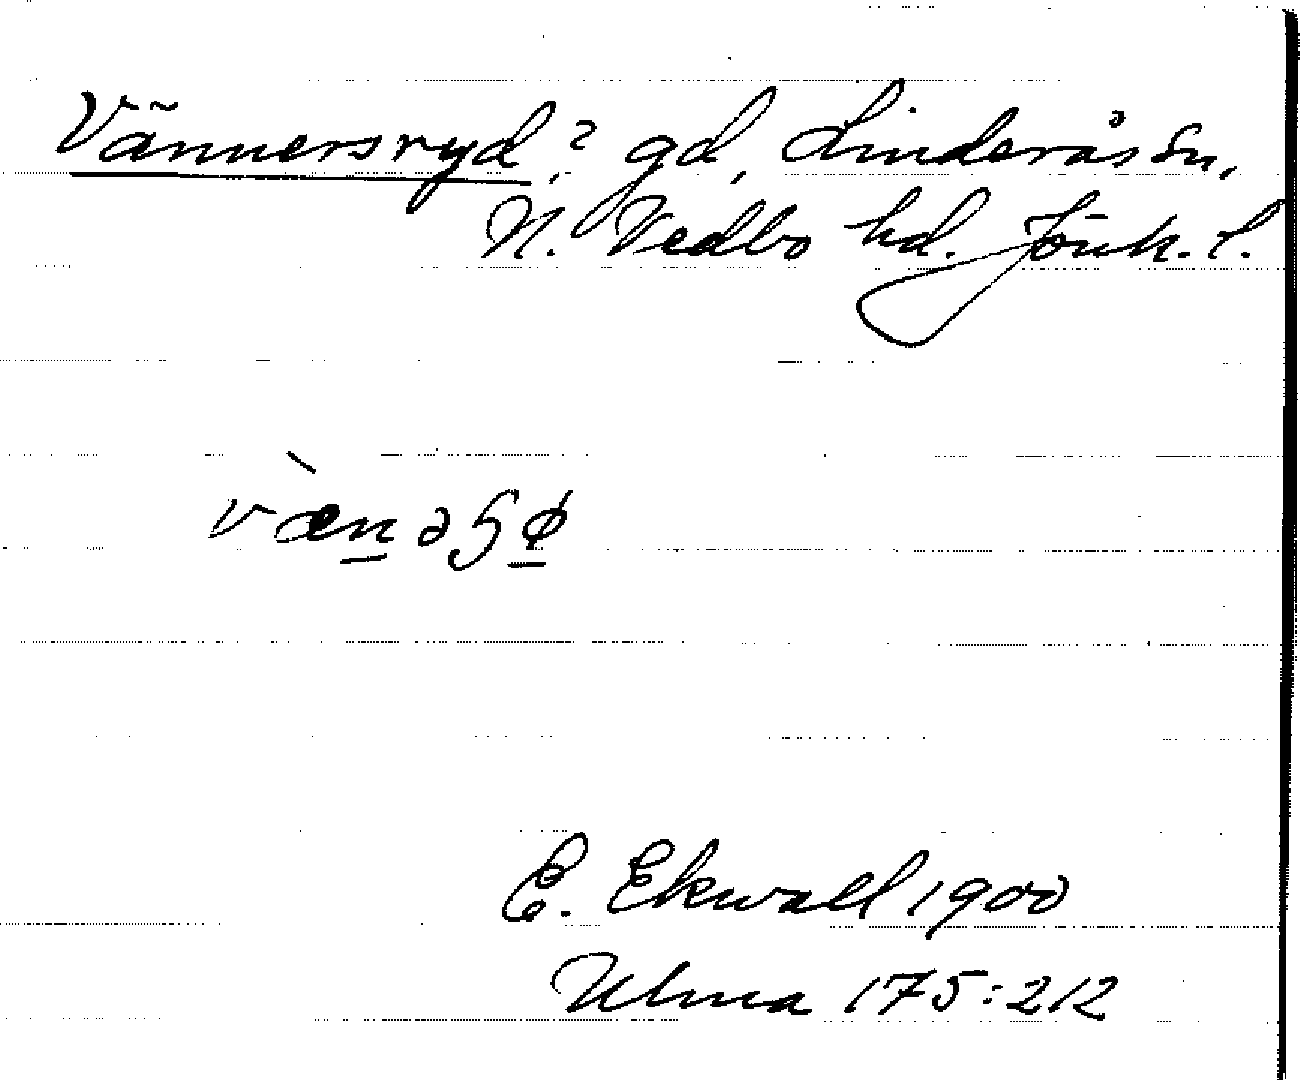 Vännersryd,? gd, Linderås sn,
N. Vedbo hd. Jönk. l.
væ̀nəʂφ
E. Ekwall 1900
Ulma 175:212